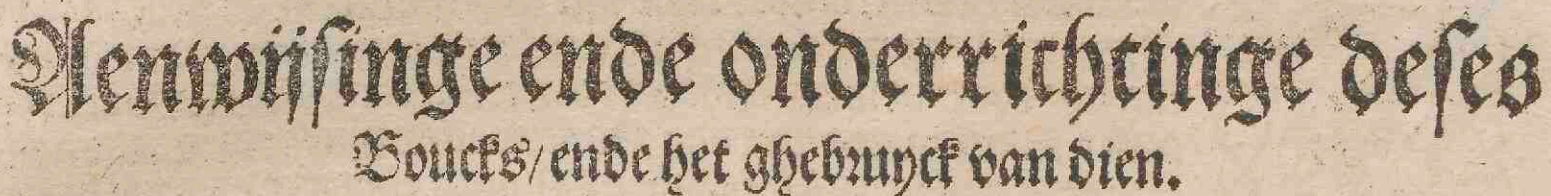 Aenwijſinge ende onderrichtinge deſes
Boucks/ ende het ghebruyck van dien.